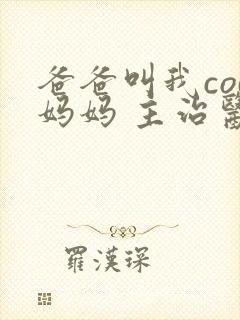 爸爸叫我co
妈妈 主治醫
羅漢琛